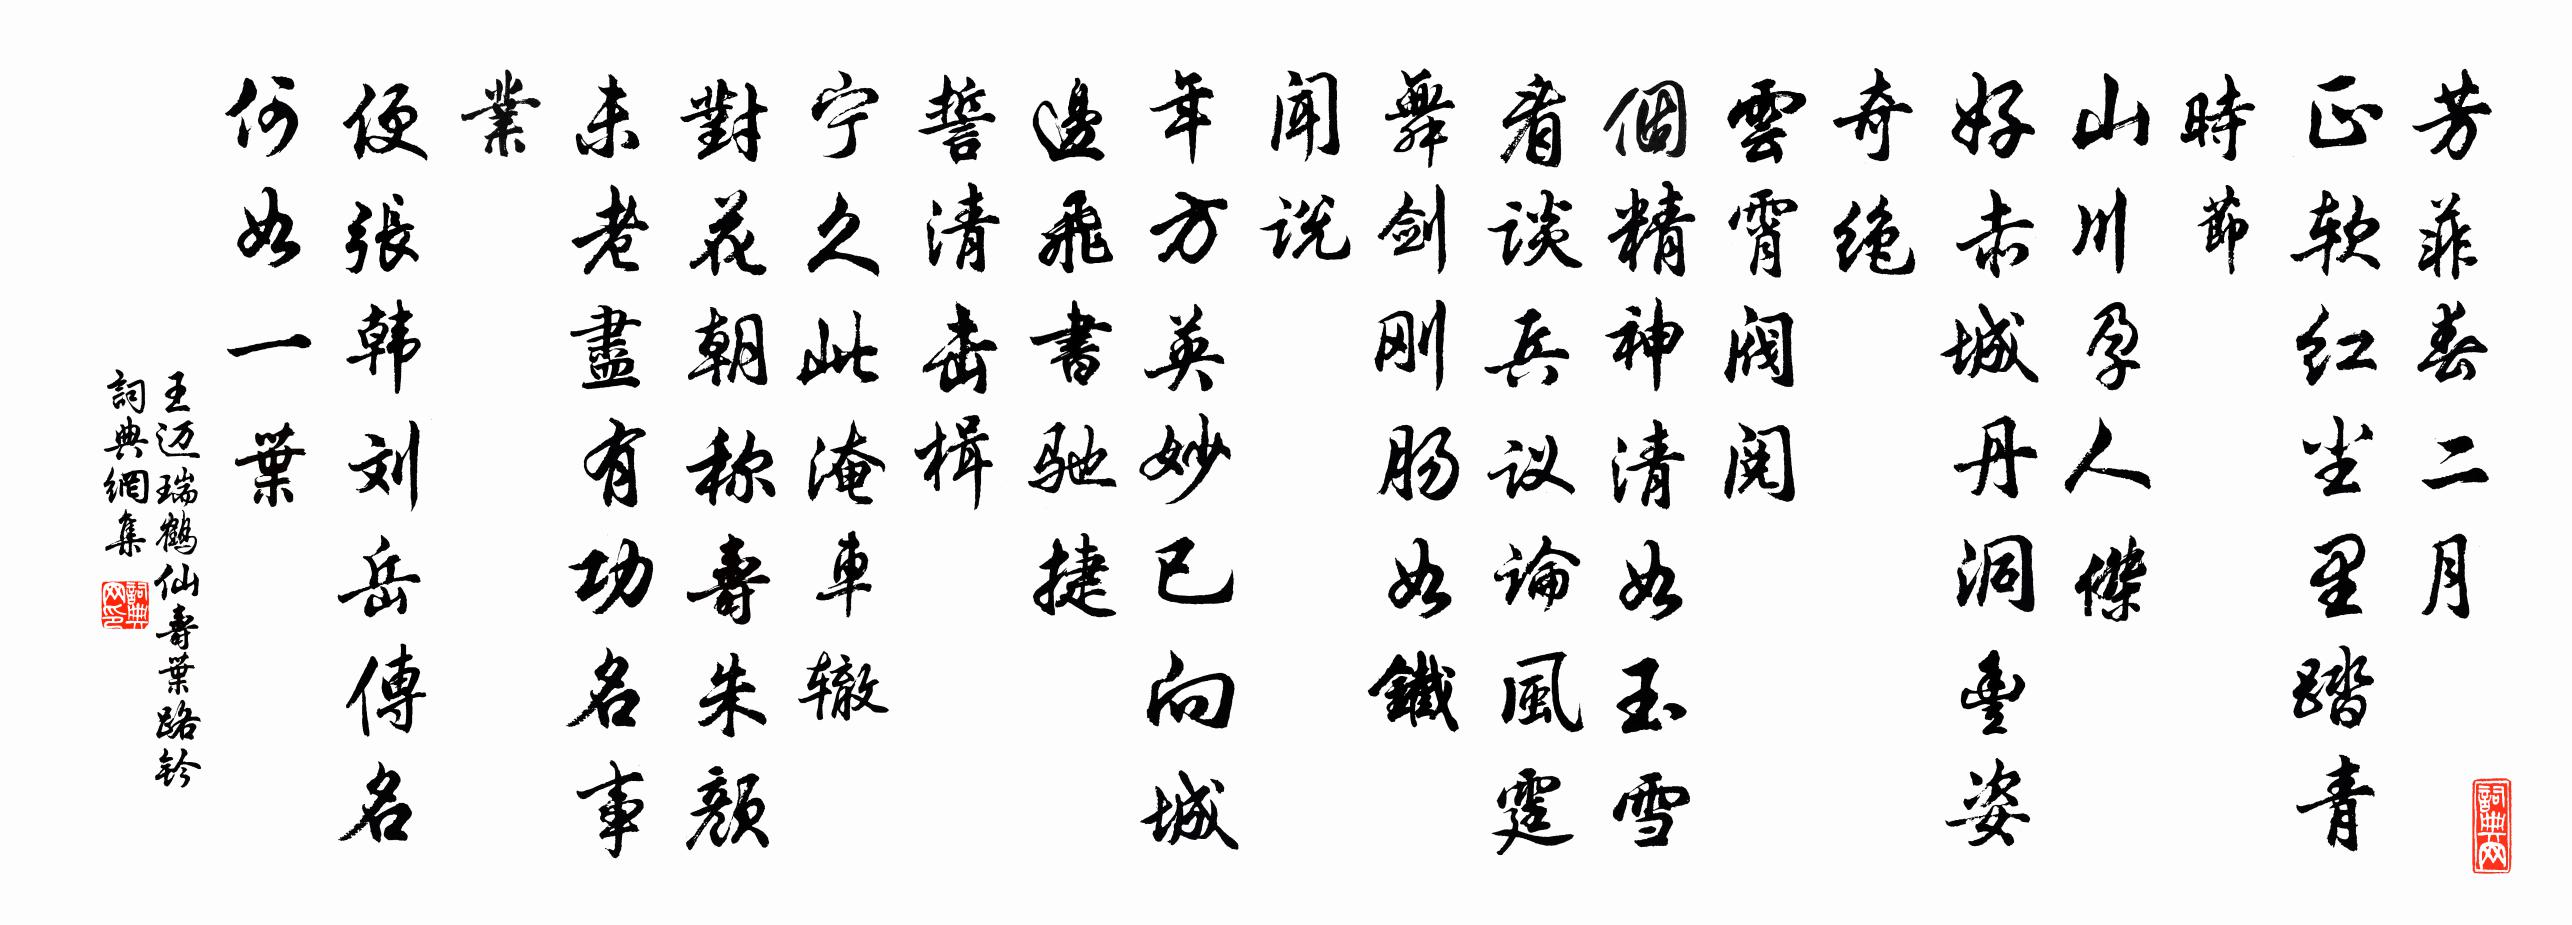 芳菲春二月
正软红尘里踏青
時節
山川孕人傑
好赤城丹洞豊姿
奇绝
雲霄阀阅
個精神清如玉雪
看谈兵议論風霆
舞剑刚肠如鐵
闻说
年方英妙已向城
邊飛書驰捷
誓清击楫
宁久此淹車辙
對花朝称壽朱颜
未老盡有功名事
業
便張韩刘岳傳名
何如一葉
王迈瑞鶴仙壽葉路钤
詞典網集
詞典网印
詞典网